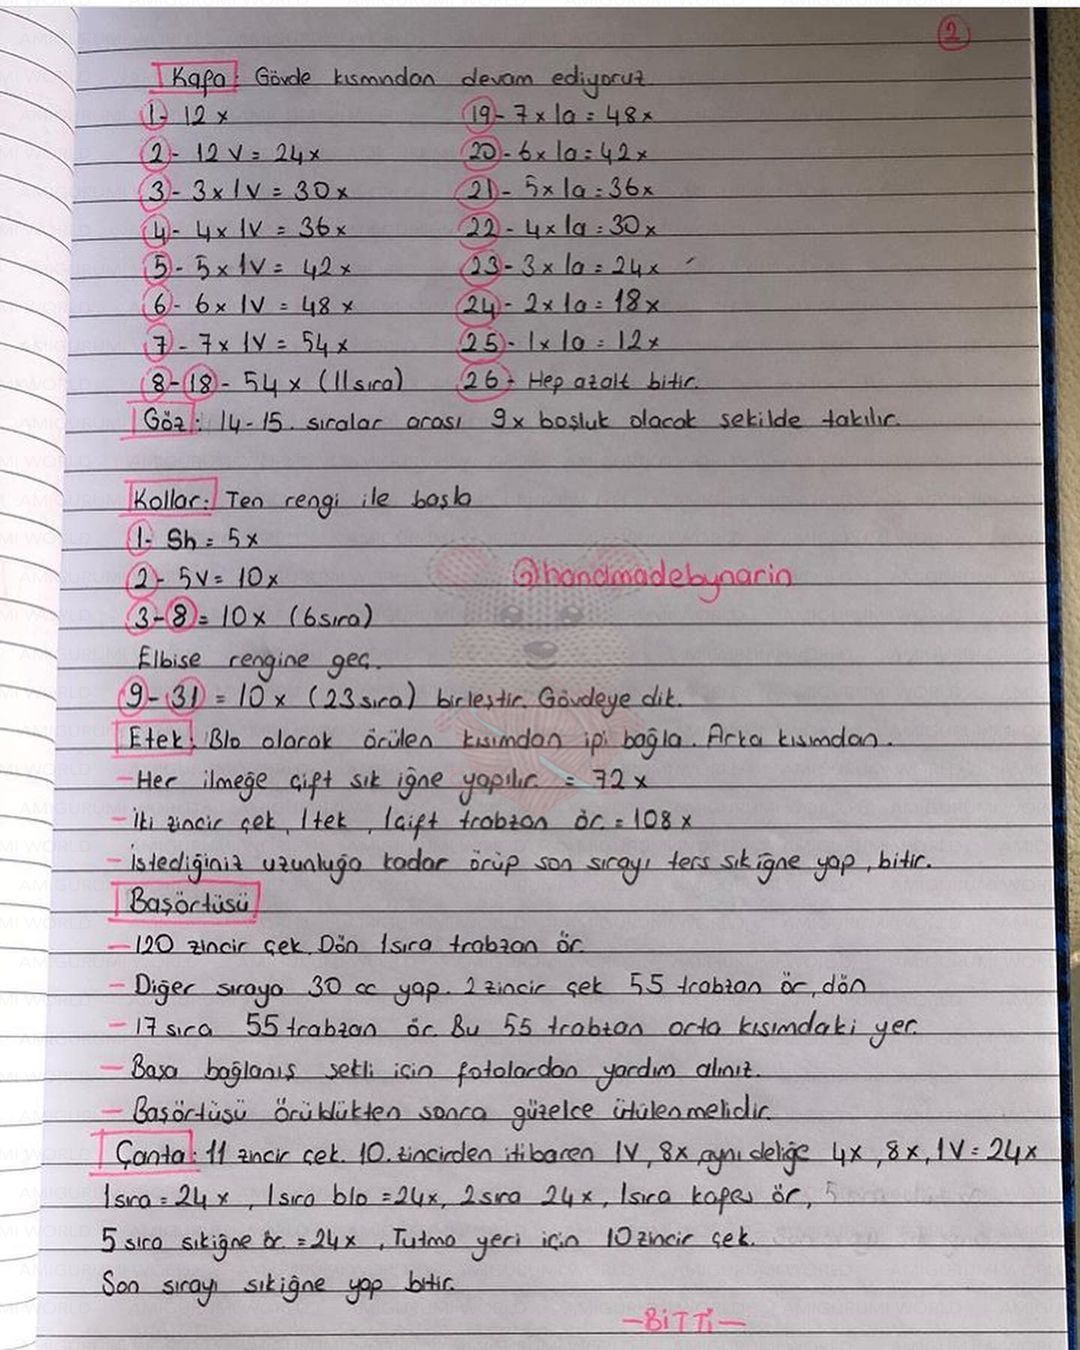 2
Kafa: Gövde kısmından devam ediyoruz
1- 12x
2- 12V = 24x
3- 3x1V = 30x
4- 4x1V = 36x
5- 5x1V = 42x
6- 6x1V = 48x
7- 7x1V = 54x
8-18- 54x (11sıra)
19- 7x1a = 48x
20- 6x1a = 42x
21- 5x1a = 36x
22- 4x1a = 30x
23- 3x1a = 24x
24- 2x1a = 18x
25- 1x1a = 12x
26- Hep azalt bitir.
Göz: 14-15. sıralar arası 9x boşluk olacak şekilde takılır.
Kollar: Ten rengi ile başla
1- Sh = 5x
2- 5V = 10x
@handmadebynarin
3-8 = 10x (6sıra)
Elbise rengine geç.
9-31 = 10x (23sıra) birleştir. Gövdeye dik.
Etek: Blo olarak örülen kısımdan ipi bağla. Arka kısımdan.
- Her ilmeğe çift sık iğne yapılır. = 72x
- İki zincir çek, 1tek, 1çift trabzan ör. = 108x
- İstediğiniz uzunluğa kadar örüp son sırayı ters sıkiğne yap, bitir.
Başörtüsü
- 120 zincir çek. Dön 1sıra trabzan ör.
- Diğer sıraya 30 cc yap. 2 zincir çek 55 trabzan ör, dön
- 17 sıra 55 trabzan ör. Bu 55 trabzan orta kısımdaki yer.
- Başa bağlanış şekli için fotolardan yardım alınız.
- Başörtüsü örüklükten sonra güzelce ütülenmelidir.
Çanta: 11 zincir çek. 10. zincirden itibaren 1V, 8x, aynı deliğe 4x, 8x, 1V = 24x
1sıra = 24x, 1sıra blo = 24x, 2sıra 24x, 1sıra kafes ör,
5 sıra sıkiğne ör. = 24x, Tutma yeri için 10zincir çek.
Son sırayı sıkiğne yap bitir.
- BİTTİ -